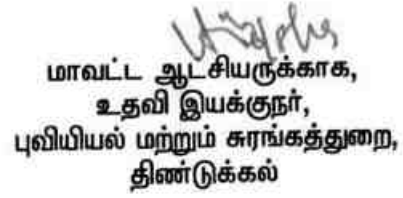 மாவட்ட ஆட்சியருக்காக,
உதவி இயக்குநர்,
புவியியல் மற்றும் சுரங்கத்துறை,
திண்டுக்கல்